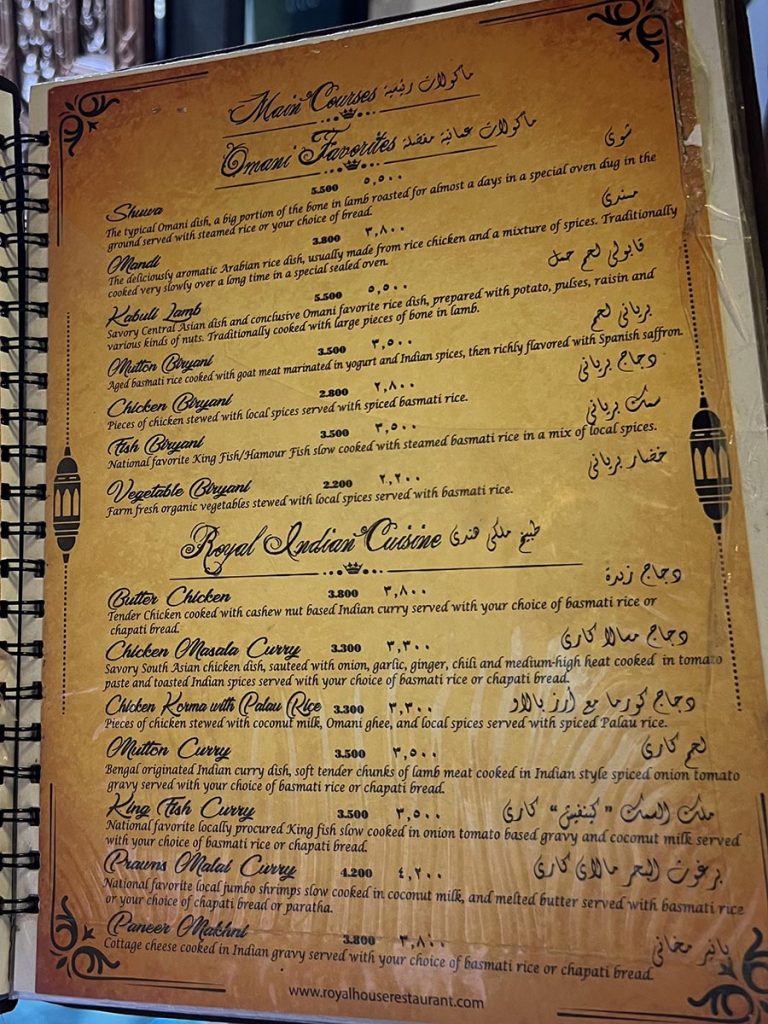 Main Courses مأكولات رئيسية
Omani Favorites مأكولات عمانية مفضلة
Shuwa 5.500 ٥,٥٠٠ شوى
The typical Omani dish, a big portion of the bone in lamb roasted for almost a days in a special oven dug in the
ground served with steamed rice or your choice of bread.
Mandi 3.800 ٣,٨٠٠ مندى
The deliciously aromatic Arabian rice dish, usually made from rice chicken and a mixture of spices. Traditionally
cooked very slowly over a long time in a special sealed oven.
Kabuli Lamb 5.500 ٥,٥٠٠ قابولى لحم حمل
Savory Central Asian dish and conclusive Omani favorite rice dish, prepared with potato, pulses, raisin and
various kinds of nuts. Traditionally cooked with large pieces of bone in lamb.
Mutton Biryani 3.500 ٣,٥٠٠ بريانى لحم
Aged basmati rice cooked with goat meat marinated in yogurt and Indian spices, then richly flavored with Spanish saffron.
Chicken Biryani 2.800 ٢,٨٠٠ دجاج بريانى
Pieces of chicken stewed with local spices served with spiced basmati rice.
Fish Biryani 3.500 ٣,٥٠٠ سمك بريانى
National favorite King Fish/Hamour Fish slow cooked with steamed basmati rice in a mix of local spices.
Vegetable Biryani 2.200 ٢,٢٠٠ خضار بريانى
Farm fresh organic vegetables stewed with local spices served with basmati rice.
Royal Indian Cuisine طبيخ ملكى هندى
Butter Chicken 3.800 ٣,٨٠٠ دجاج زبدة
Tender Chicken cooked with cashew nut based Indian curry served with your choice of basmati rice or
chapati bread.
Chicken Masala Curry 3.300 ٣,٣٠٠ دجاج مسالا كارى
Savory South Asian chicken dish, sauteed with onion, garlic, ginger, chili and medium-high heat cooked in tomato
paste and toasted Indian spices served with your choice of basmati rice or chapati bread.
Chicken Korma with Palau Rice 3.300 ٣,٣٠٠ دجاج كورما مع أرز بالاو
Pieces of chicken stewed with coconut milk, Omani ghee, and local spices served with spiced Palau rice.
Mutton Curry 3.500 ٣,٥٠٠ لحم كارى
Bengal originated Indian curry dish, soft tender chunks of lamb meat cooked in Indian style spiced onion tomato
gravy served with your choice of basmati rice or chapati bread.
King Fish Curry 3.500 ٣,٥٠٠ ملك السمك "كينفيش" كارى
National favorite locally procured King fish slow cooked in onion tomato based gravy and coconut milk served
with your choice of basmati rice or chapati bread.
Prawns Malai Curry 4.200 ٤,٢٠٠ برغوث البحر مالاى كارى
National favorite local jumbo shrimps slow cooked in coconut milk, and melted butter served with basmati rice
or your choice of chapati bread or paratha.
Paneer Makhni 3.800 ٣,٨٠٠ بانير مخانى
Cottage cheese cooked in Indian gravy served with your choice of basmati rice or chapati bread.
www.royalhouserestaurant.com